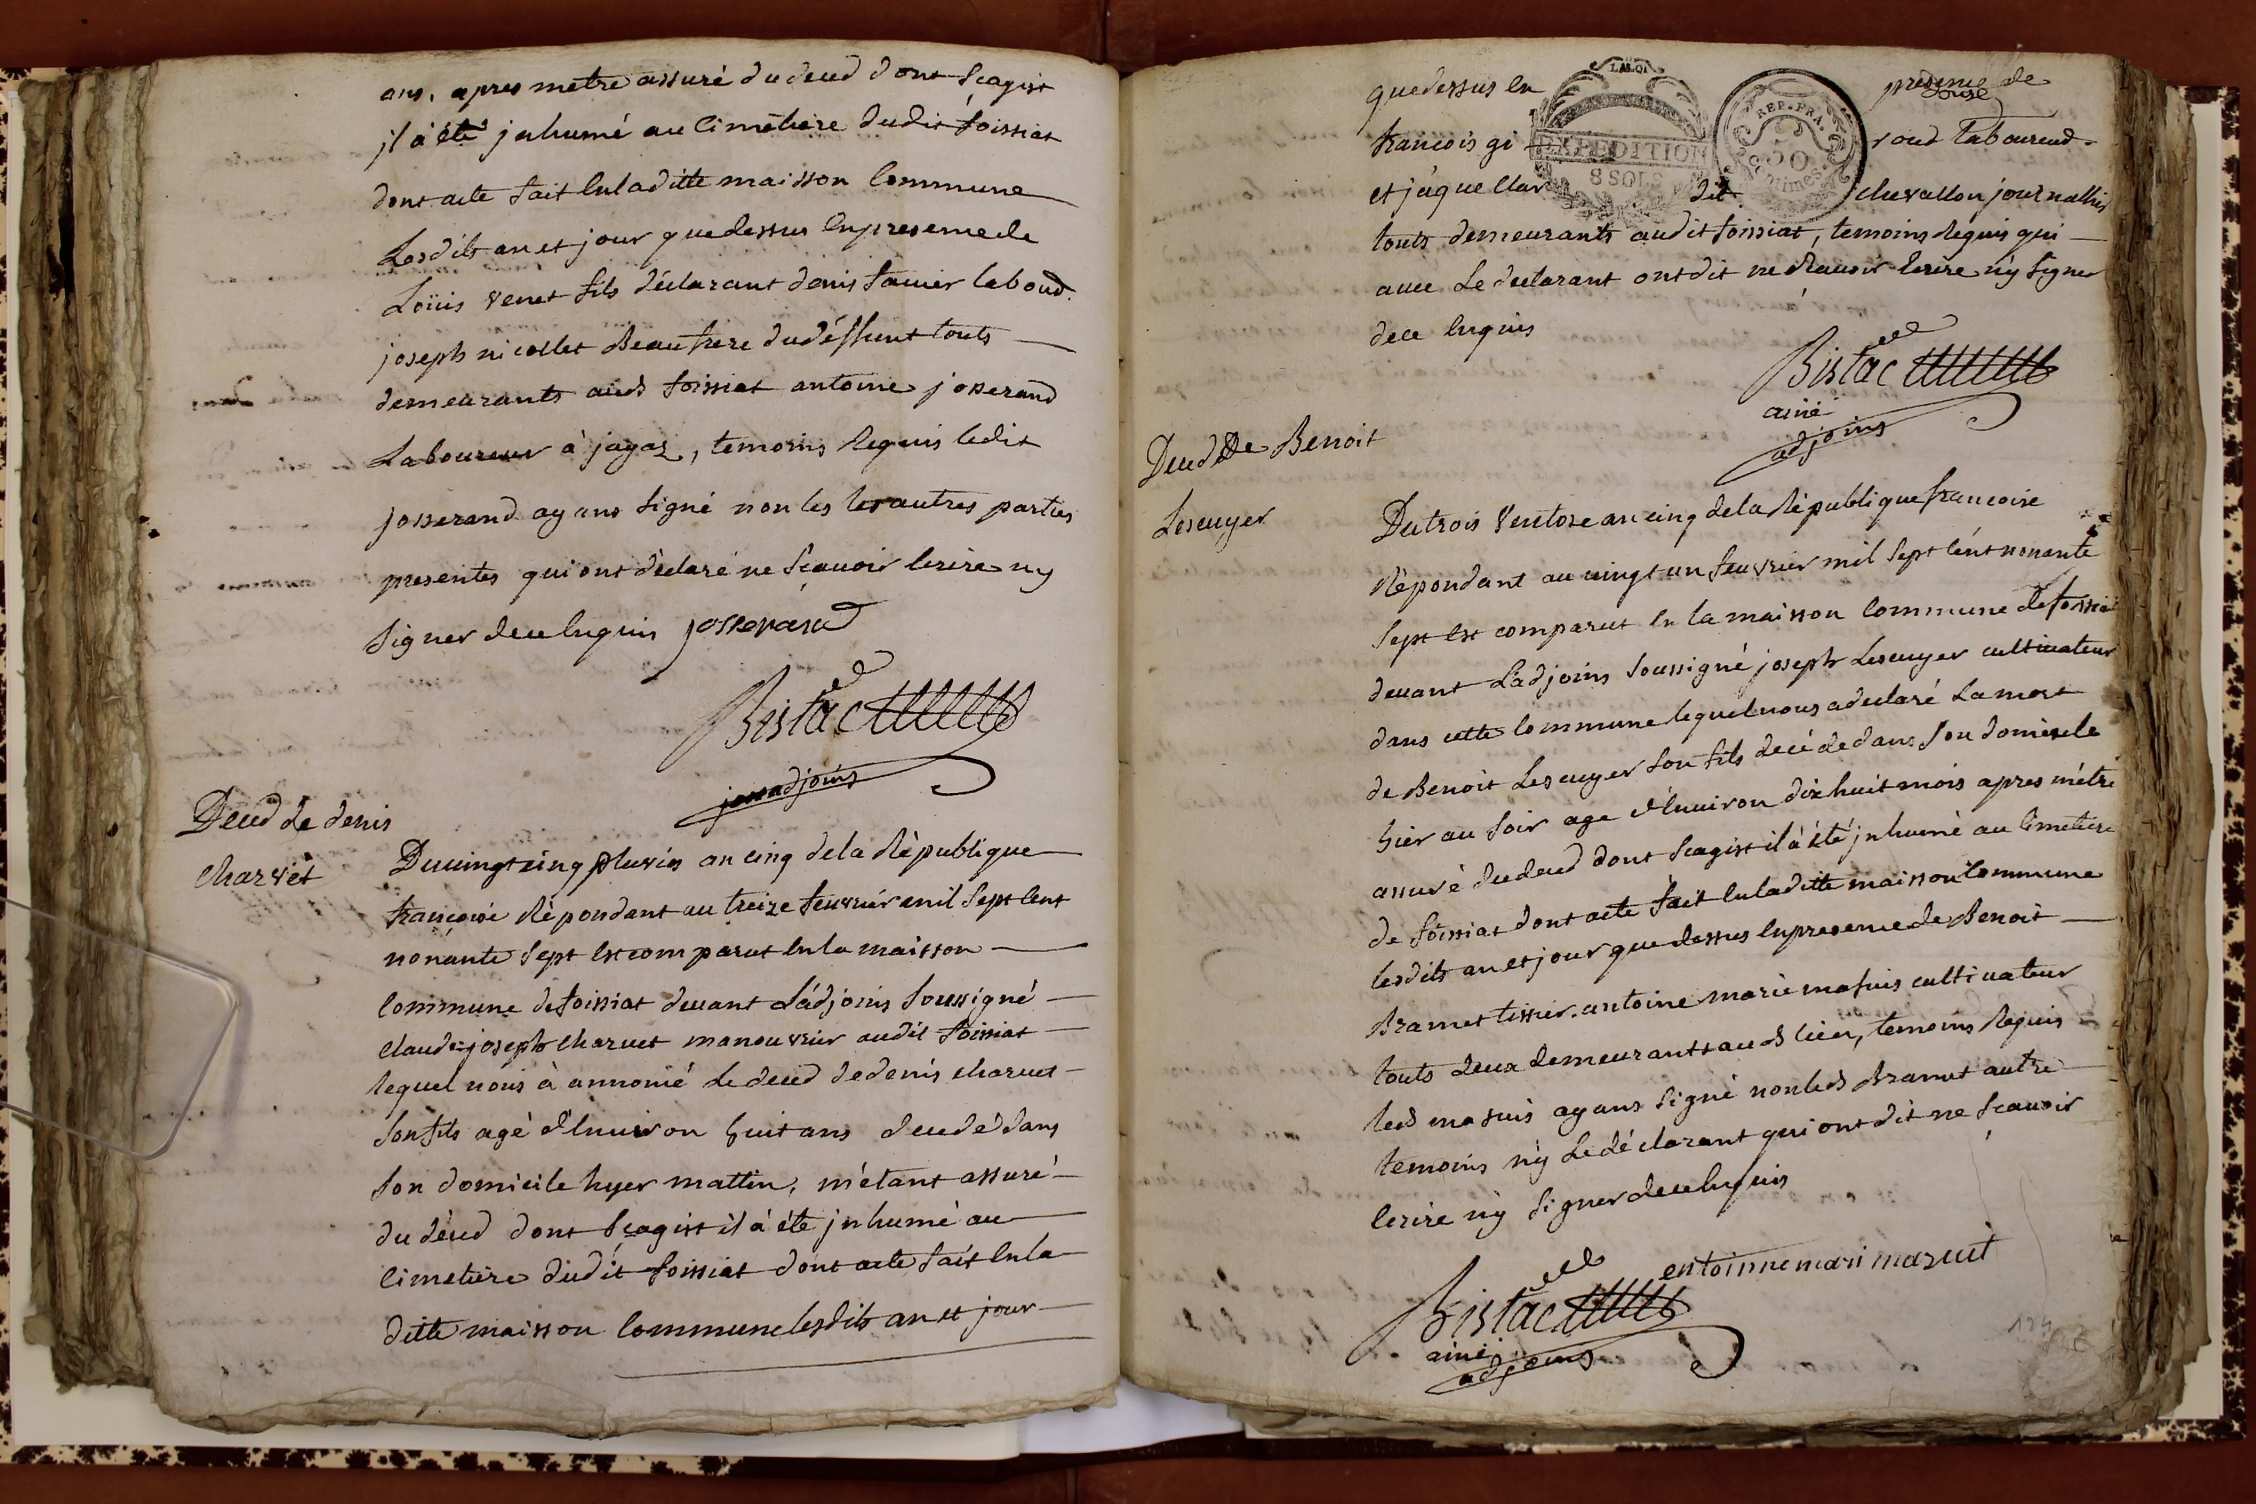 ans, apres metre assuré du deced dont sçagist
il à été jnhumé au cimetiere dudit foissiat
dont acte fait en laditte maisson commune
Lesdits an et jour que dessus en presence de
Loüis venet fils déclarant denis favier laboud.
joseph nicollet Beaufrere du déffunt touts
demeurants auds foissiat antoine josserand
Laboureur à jayaz, temoins Requis ledit
josserand ayans signé non les les autres parties
presentes qui ont déclaré ne sçauoir ecrire ny
signer de ce enquis josserand
Bistac
adjoins
Deced de denis
charvet
Du uingt cinq pluvios an cinq de la République
françoise Répondant au treize feuvrier mil sept cent
nonante sept est comparut en la maisson
commune de foissiat deuant L'adjoins soussigné
claude joseph charuet manouvrier audit foissiat
lequel nous à annoncé Le deced de denis charuet
son fils agé d'enuiron huit ans decedé dans
son domicile hyer mattin, m'étant assuré
du déced dont sçagist il à été jnhumé au
cimetiere dudit foissiat dont acte fait en la
ditte maisson commune lesdits an et jour
que dessus en presence de
LA LOI
EXPEDITION
8 SOLS
REP. FRA.
50
centimes
françois giroud Laboureud
et jàque clar dit chevallon journallier
touts demeurants audit foissiat, temoins Requis qui
auec Le declarant ont dit ne sçauoir ecrire n'y signer
de ce enquis
Bistac
ainé
adjoins
Deced De Benoit
Lescuyer
Du trois ventose an cinq de la République francoise
Répondant au uingt un feuvrier mil sept cént nonante
sept est comparut en la maisson commune de foissiat
deuant L'adjoins soussigné joseph Lescuyer cultiuateur
dans cette commune lequel nous a declaré La mort
de Benoit Lescuyer son fils decéde dans son domicile
hier au soir age d'enuiron dix huit mois apres métre
assuré du deced dont sçagist il à été jnhumé au cimetiere
de foissiat dont acte fait en laditte maisson commune
lesdits an et jour que dessus en presence de Benoit
Bramet tissier. antoine marie masuis cultiuateur
touts deux demeurants auds lieu, temoins Requis
leds masuis ayans signé non leds Bramet autre
temoins n'y Le déclarant qui ont dit ne sçauoir
ecrire n'y signer de ce enquis
entoinne mari mazuit
Bistac
ainé
adjoins